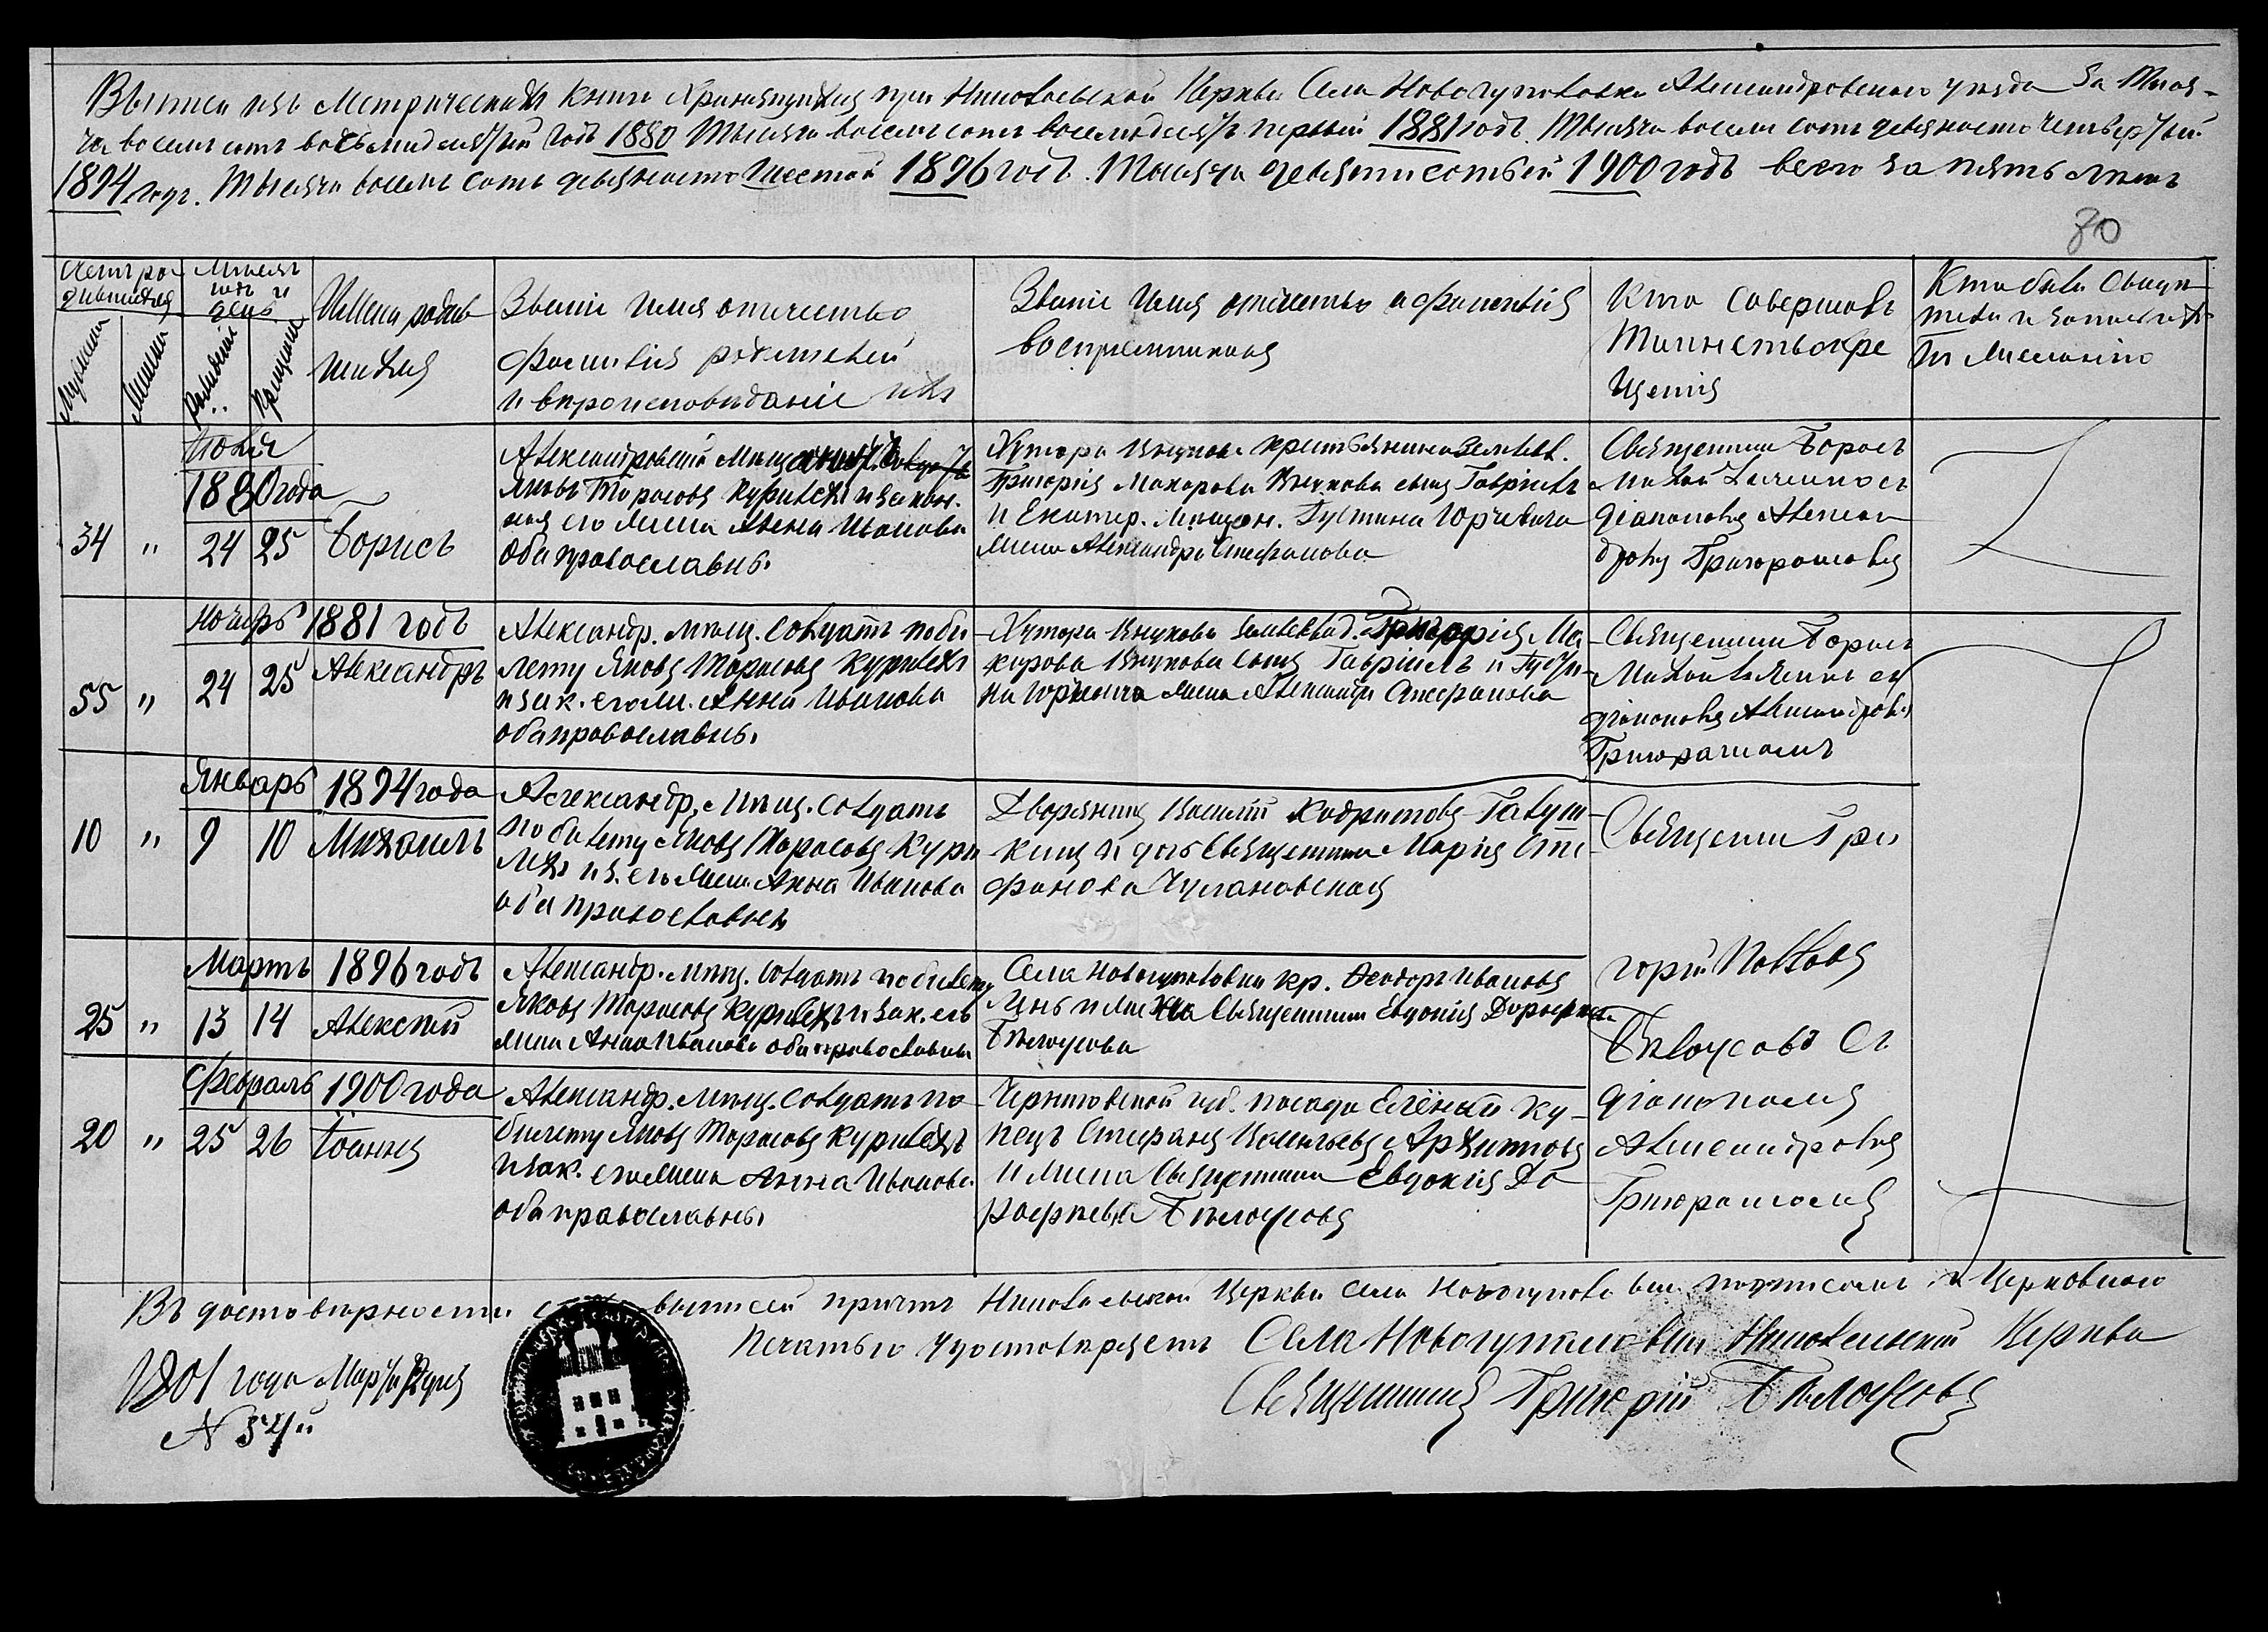 Выписи изъ Метрическихъ книгъ Хранящихся при Николаевской Церкви Села Новогуполовки Александровскаго уезда За Тыся-
ча восемъ сотъ восьмидесятый Годъ 1880 Тысяча восемъ сотъ восемьдесятъ первый 1881 годъ. Тысяча восемъ сотъ девяносто четвертый
1894 годъ. Тысяча восемь сотъ девяносто шестой 1896 годъ. Тысяча девятисотый 1900 годъ всего за пять летъ
80
Счетъ ро
дившихся
Мужеска
Женска
Месяцъ
годъ и
день
Рождения
Крещения
Имена родив
шихся
Званіе Имя отчество
фамилія родителей
и вероисповеданіе ихъ
Званіе Имя отчество и фамилія
воспріемниковъ
Кто совершалъ
Таинство кре
щенія
34 " Іюня
1880 года
24 25 Борисъ
Александровскій Мещ
Яковъ Тарасовъ Курилехъ и закон.
ная его жена Анна Иванова
оба православны.
Хутора Внукова крестьянина
Григорія Макарова Внукова сынъ Гавріилъ
и Екатер. Мещан. Густина Юрчевича
жена Александра Стефанова
Священникъ Борисъ
діакономъ Алексан
дромъ Григорашовъ
55 " Ноябрь 1881 годъ
24 25 Александръ
Александр. мещ. Солдатъ по би
лету Яковъ Тарасовъ Курилехъ
и зак. его ж. Анна Иванова
оба православны.
Хутора Внукова Григорія Ма
карова Внукова сынъ Гавріилъ и Густи
на Юрчевича жена Александра Стефанова
Священникъ Борисъ
діакономъ Александровъ
Григорашомъ
10 " Январь 1894 года
9 10 Михаилъ
Александр. Мещ. Солдатъ
по билету Яковъ Тарасовъ Кури
лехъ и з. его жена Анна Иванова
оба православны
Дворянинъ Василій
кинъ и дочь Священника Марія Сте
фанова Чугановская
Священникъ Гри
25 " Мартъ 1896 годъ
13 14 Алексей
Александр. мещ. Солдатъ по билету
Яковъ Тарасовъ Курилехъ и зак. его
жена Анна Иванова оба православны
Села Новогуполовки кр. Феодоръ Ивановъ
Линь и жена Священника Евдокія Дорофеева
Белоусова
горій Павловъ
Белоусовъ съ
20 " Февраль 1900 года
25 26 Іоаннъ
Александр. мещ. Солдатъ по
билету Яковъ Тарасовъ Курилехъ
и зак. его жена Анна Иванова
оба православны
Черниговской губ. посада Еліонки ку
пецъ Стефанъ Васильевъ Архиповъ
и жена Священника Евдокія До
рофеева Белоусова
діакономъ
Александромъ
Григорашомъ
Въ достоверности выписей причтъ Николаевской Церкви села Новогуполовки подписомъ и Церковною
Печатью удостоверяетъ Села Новогуполовки Николаевской Церкви
1901 года Марта 2 дня
Священникъ Григорій Белоусовъ